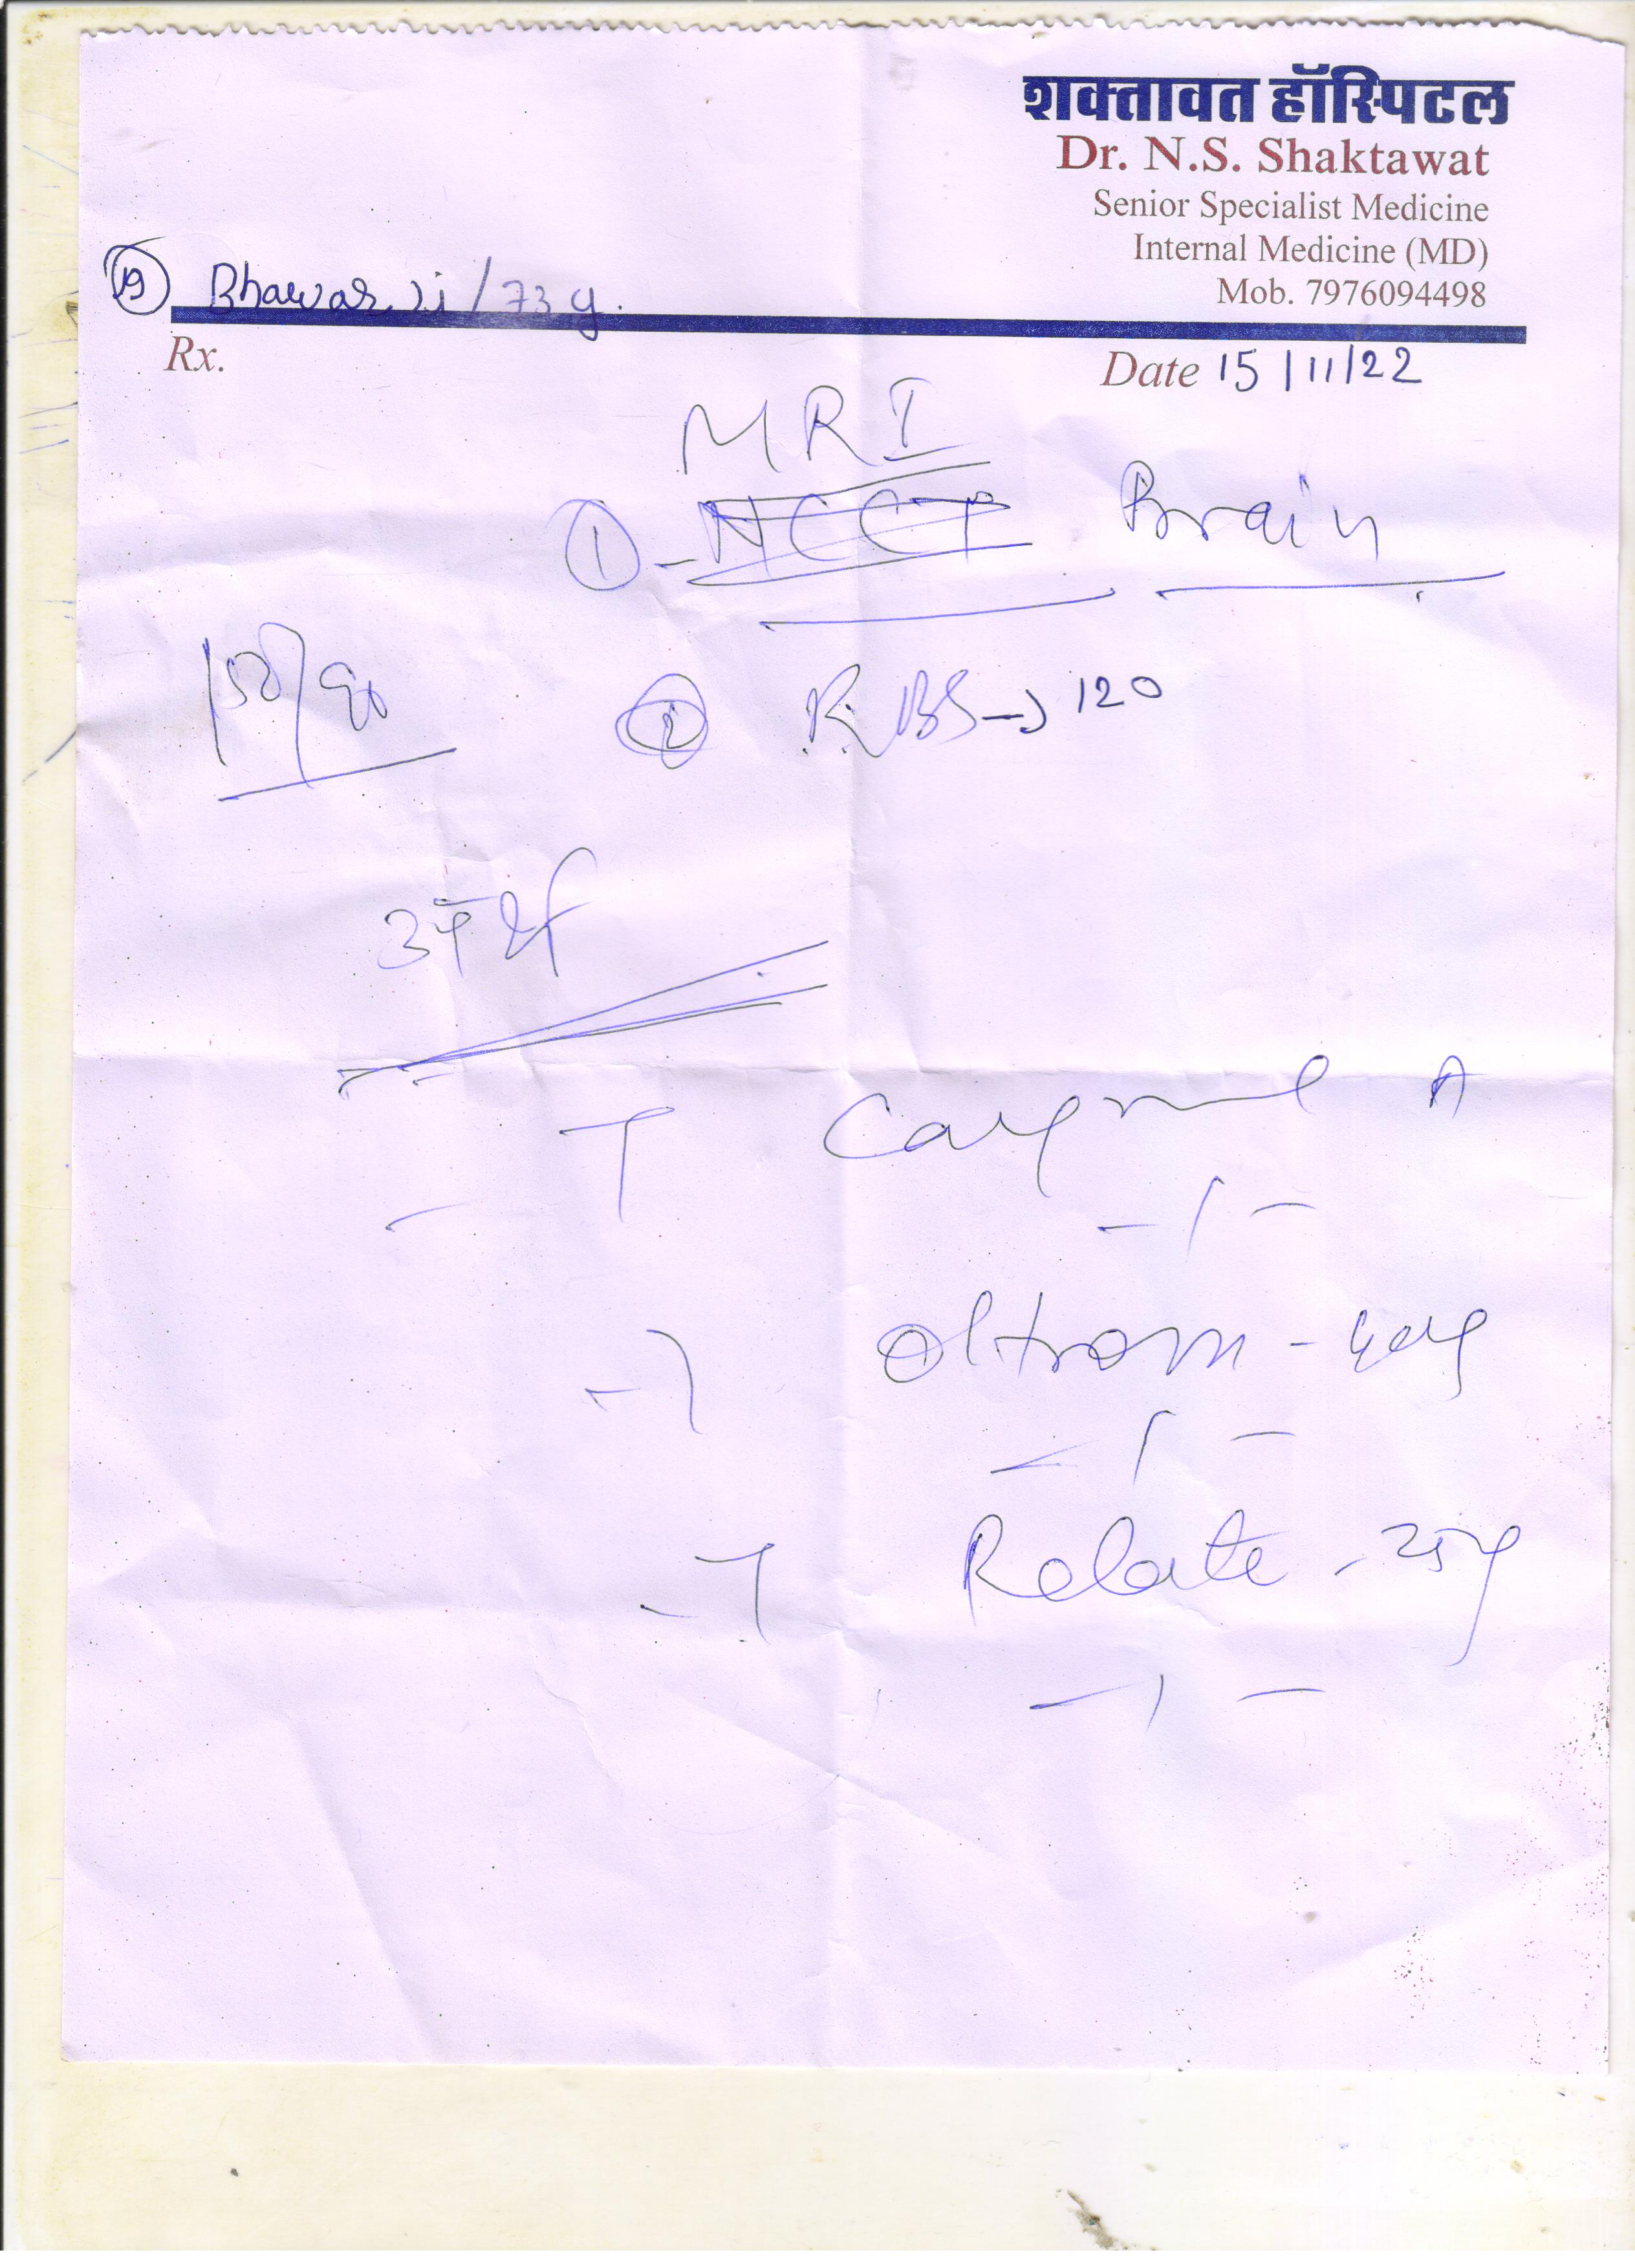 शक्तावत हॉस्पिटल
Dr. N.S. Shaktawat
Senior Specialist Medicine
Internal Medicine (MD)
Mob. 7976094498
19 Bhawar ji / 73 y.
Rx.
Date 15/11/22
MRI
1 - NCCT Brain
150/90
2 RBS → 120
T A
- 1 -
- 1 -
Relate - 25
- 1 -